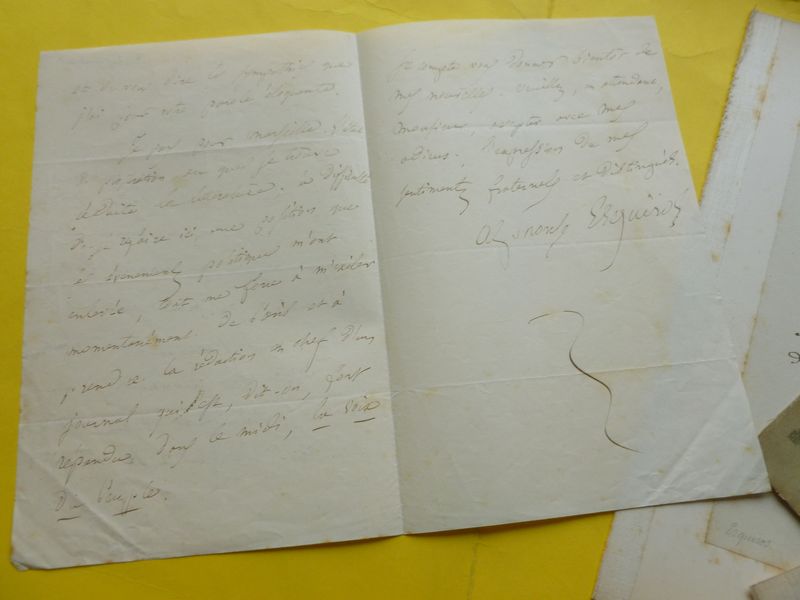 et de vous dire la sympathie que
j'ai pour votre parole éloquente.
Je pars pour marseille. L'état
de
la littérature, la difficulté
de refaire ici une position que
les événements politiques m'ont
enlevée, tout me force à m'exiler
momentanément de Paris et à
prendre la rédaction en chef d'un
journal qui est, dit-on, fort
répandu dans le midi, la Voix
du Peuple.
Je compte vous donner bientôt de
mes nouvelles. Veuillez, en attendant,
Monsieur, accepter avec mes
adieux, l'expression de mes
sentiments fraternels et distingués.
Alphonse Esquiros
Esquiros